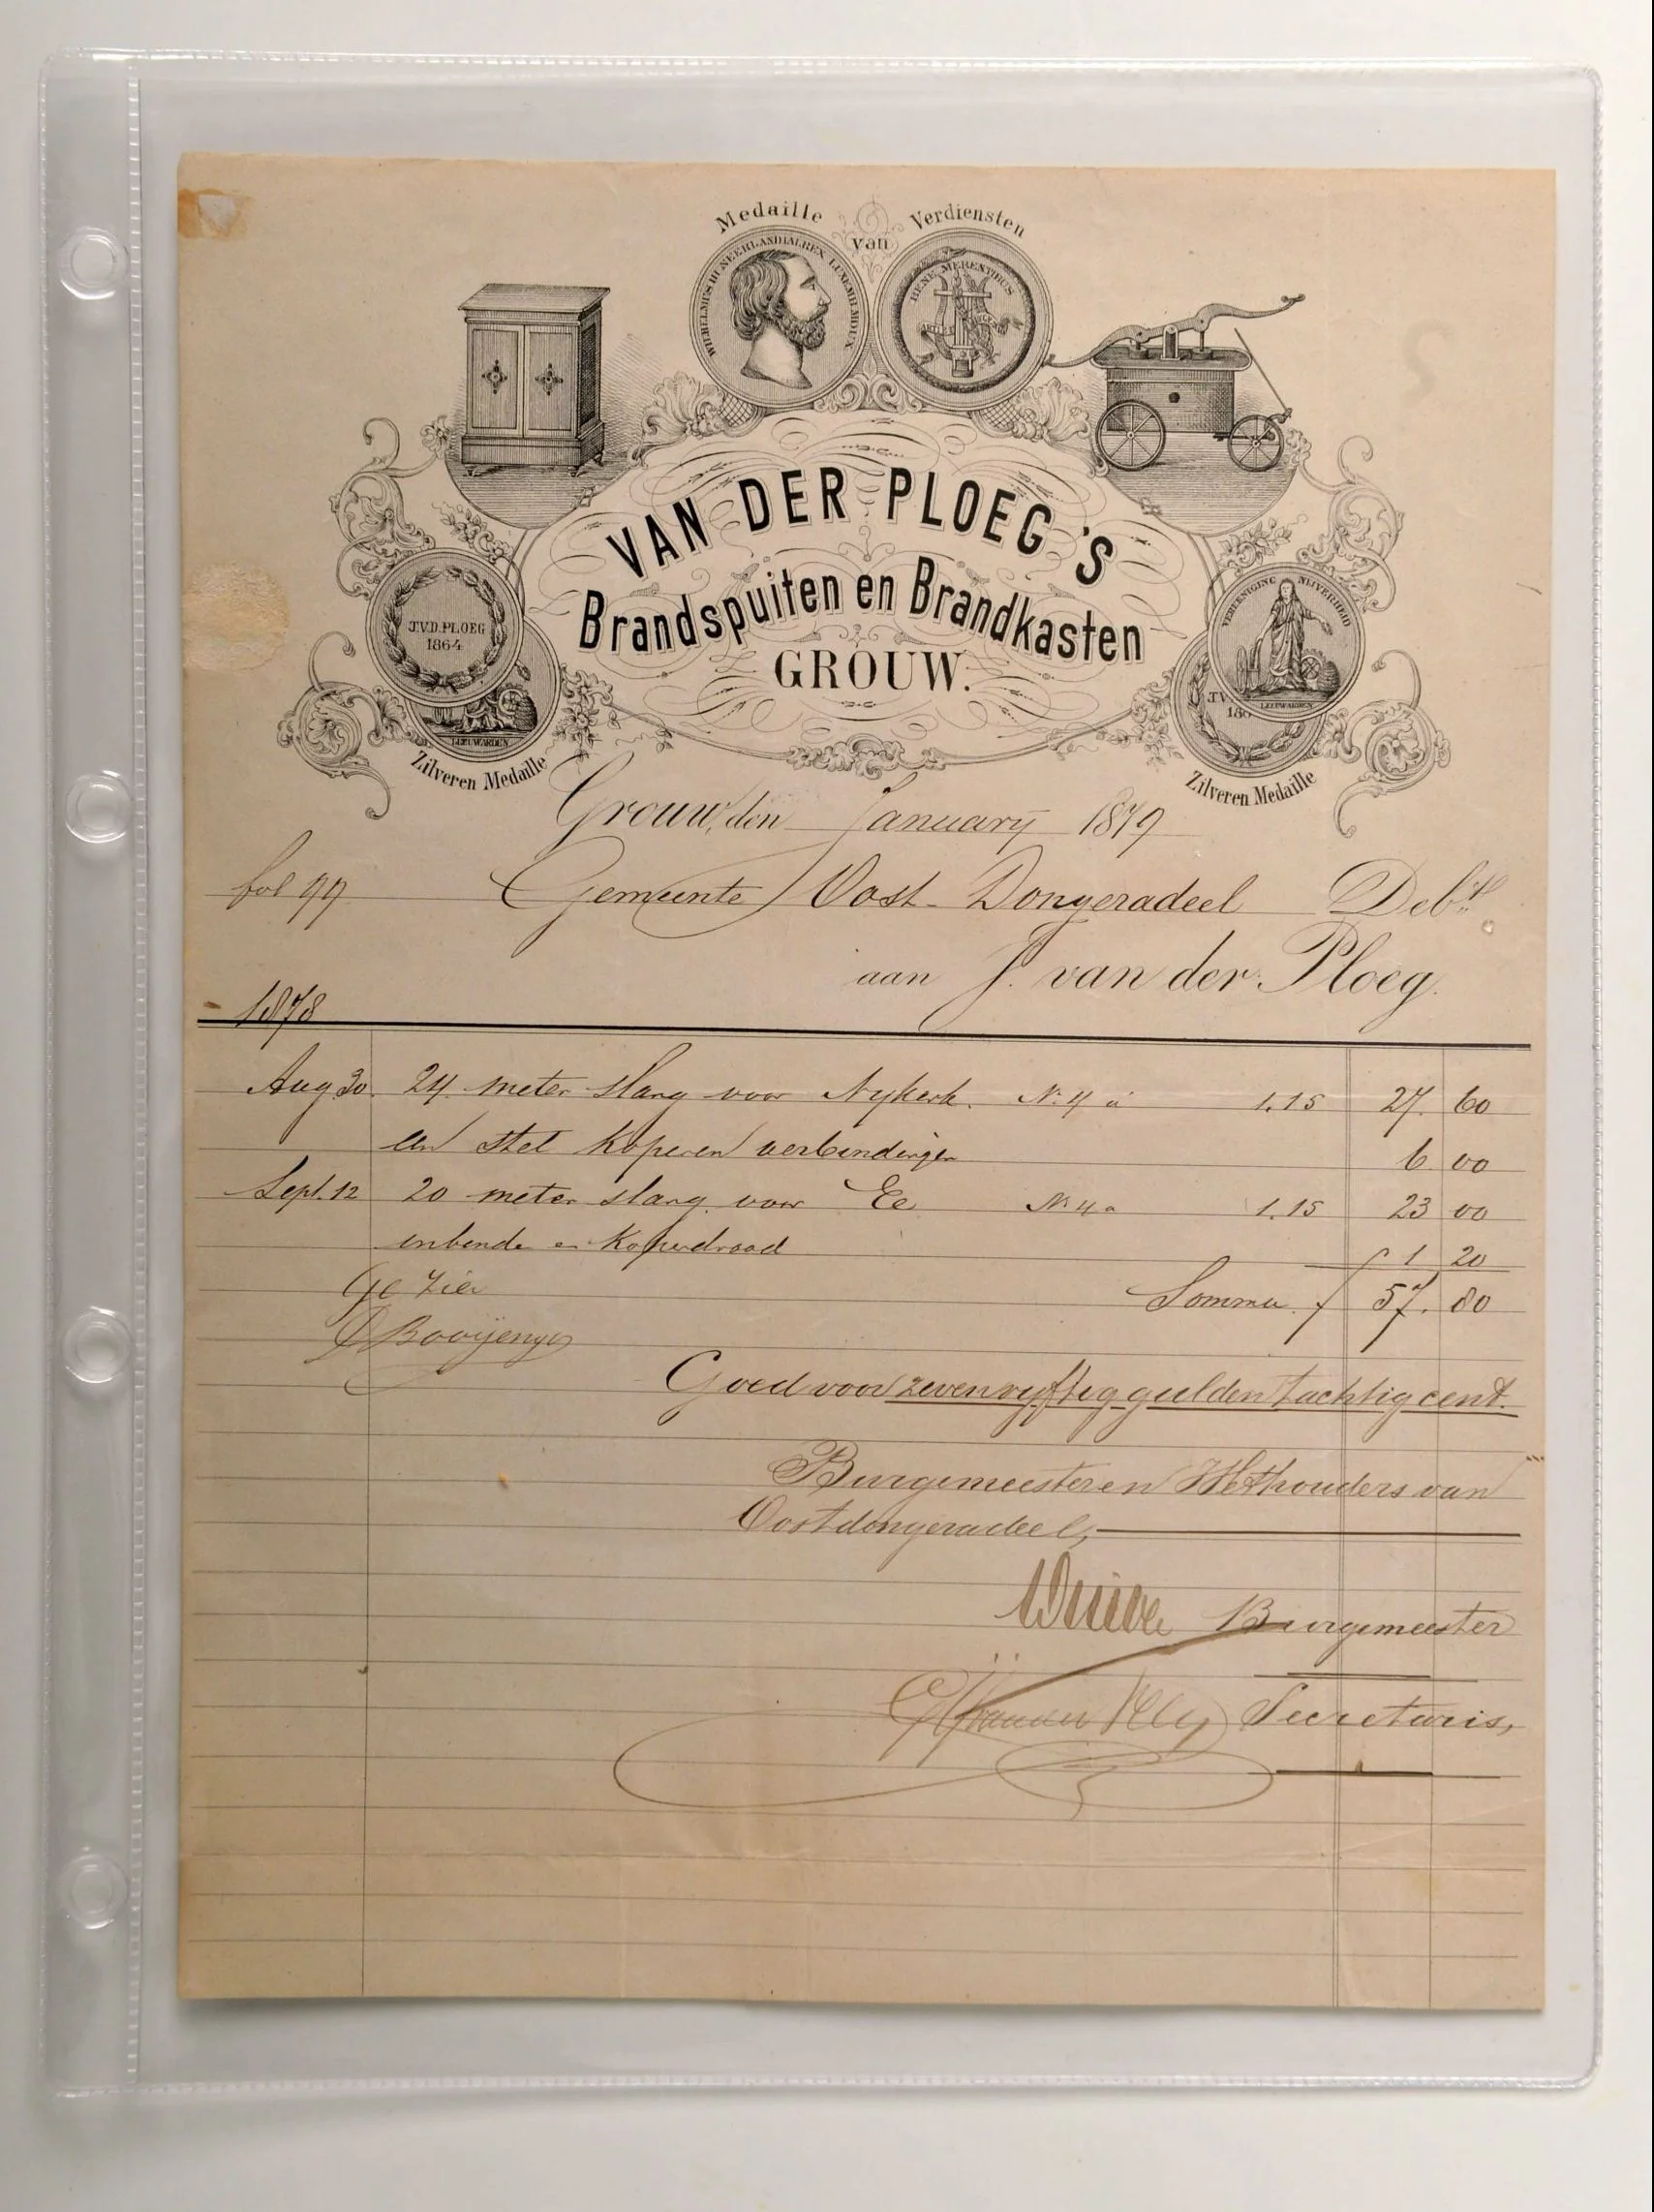 Medaille van Verdiensten
BENE MERENTIBUS
VAN DER PLOEG'S
Brandspuiten en Brandkasten
GROUW.
J.V.D. PLOEG
1864
LEEUWARDEN
Zilveren Medaille
VEREENIGING NIJVERHEID
LEEUWARDEN
J.V.
186
Zilveren Medaille
Grouw, den January 1879
fol 99 Gemeente Oost-Dongeradeel Debt
aan J. van der Ploeg.
1878
Aug 30. 24 meter slang voor Nykerk. No. 4 à 1.15 27. 60
een stel koperen verbindingen 6 00
Sept. 12 20 meter slang voor Ee No 4 a 1.15 23 00
inbende en Koperdraad f 1 20
Gezien Somma f 57. 80
Booijenga
Goed voor zevenvyftig gulden tachtig cent.
Burgemeester en Wethouders van
Oostdongeradeel,
Burgemeester
Secretaris,